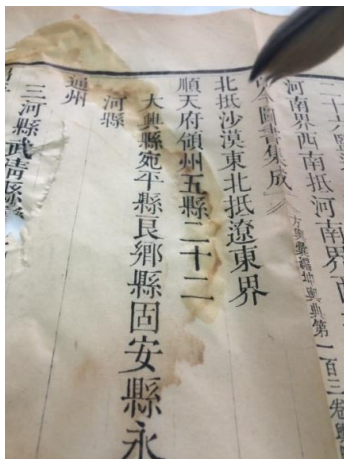 二十六
河南界西南抵河南界
今圖書集成
方輿彙編坤輿典第一百三卷輿
北抵沙漠東北抵遼東界
順天府領州五縣二十二
大興縣宛平縣良鄉縣固安縣永
河縣
通州
三河縣武清縣